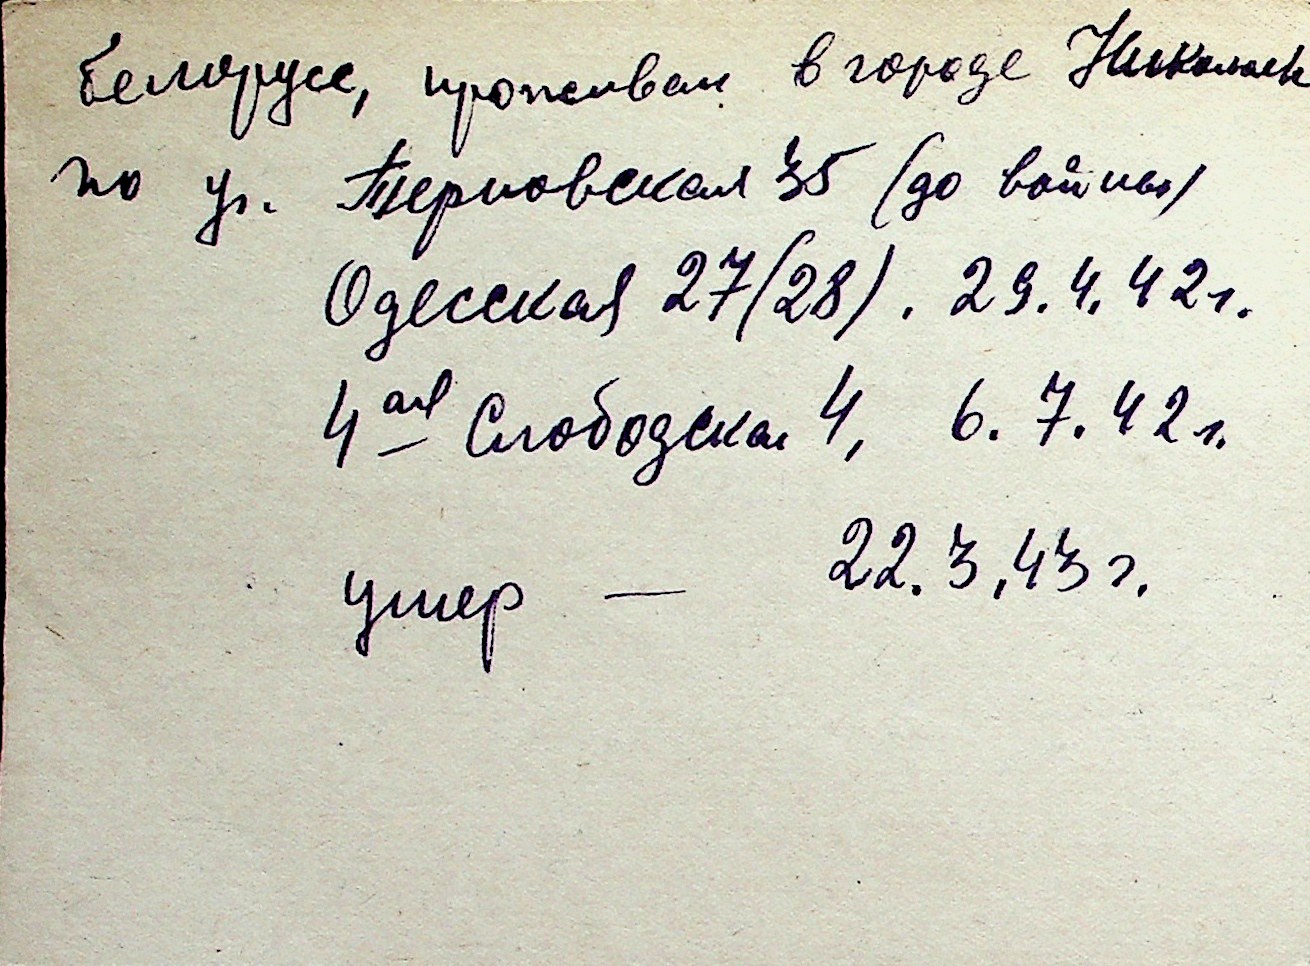 Белорусс, проживал в городе Николаев
по ул. Терновская 35 (до войны)
Одесская 27(28). 29.4.42 г.
4ая Слободская 4, 6.7.42 г.
умер — 22.3.43 г.